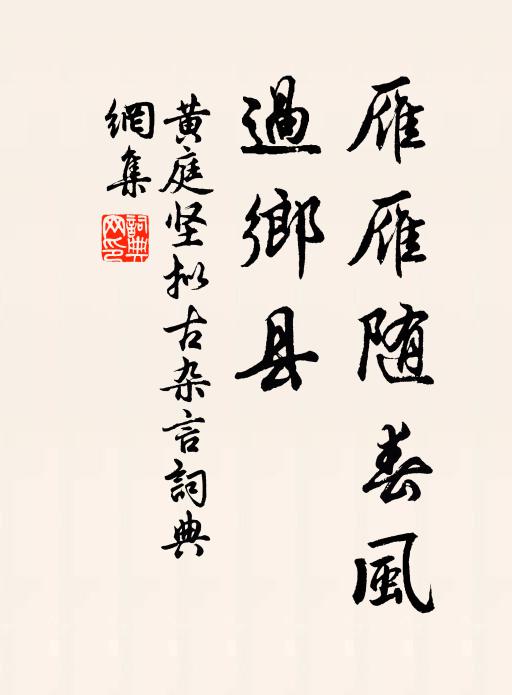 雁雁随春風
過鄉县
黄庭坚拟古杂言詞典
網集
詞典网印